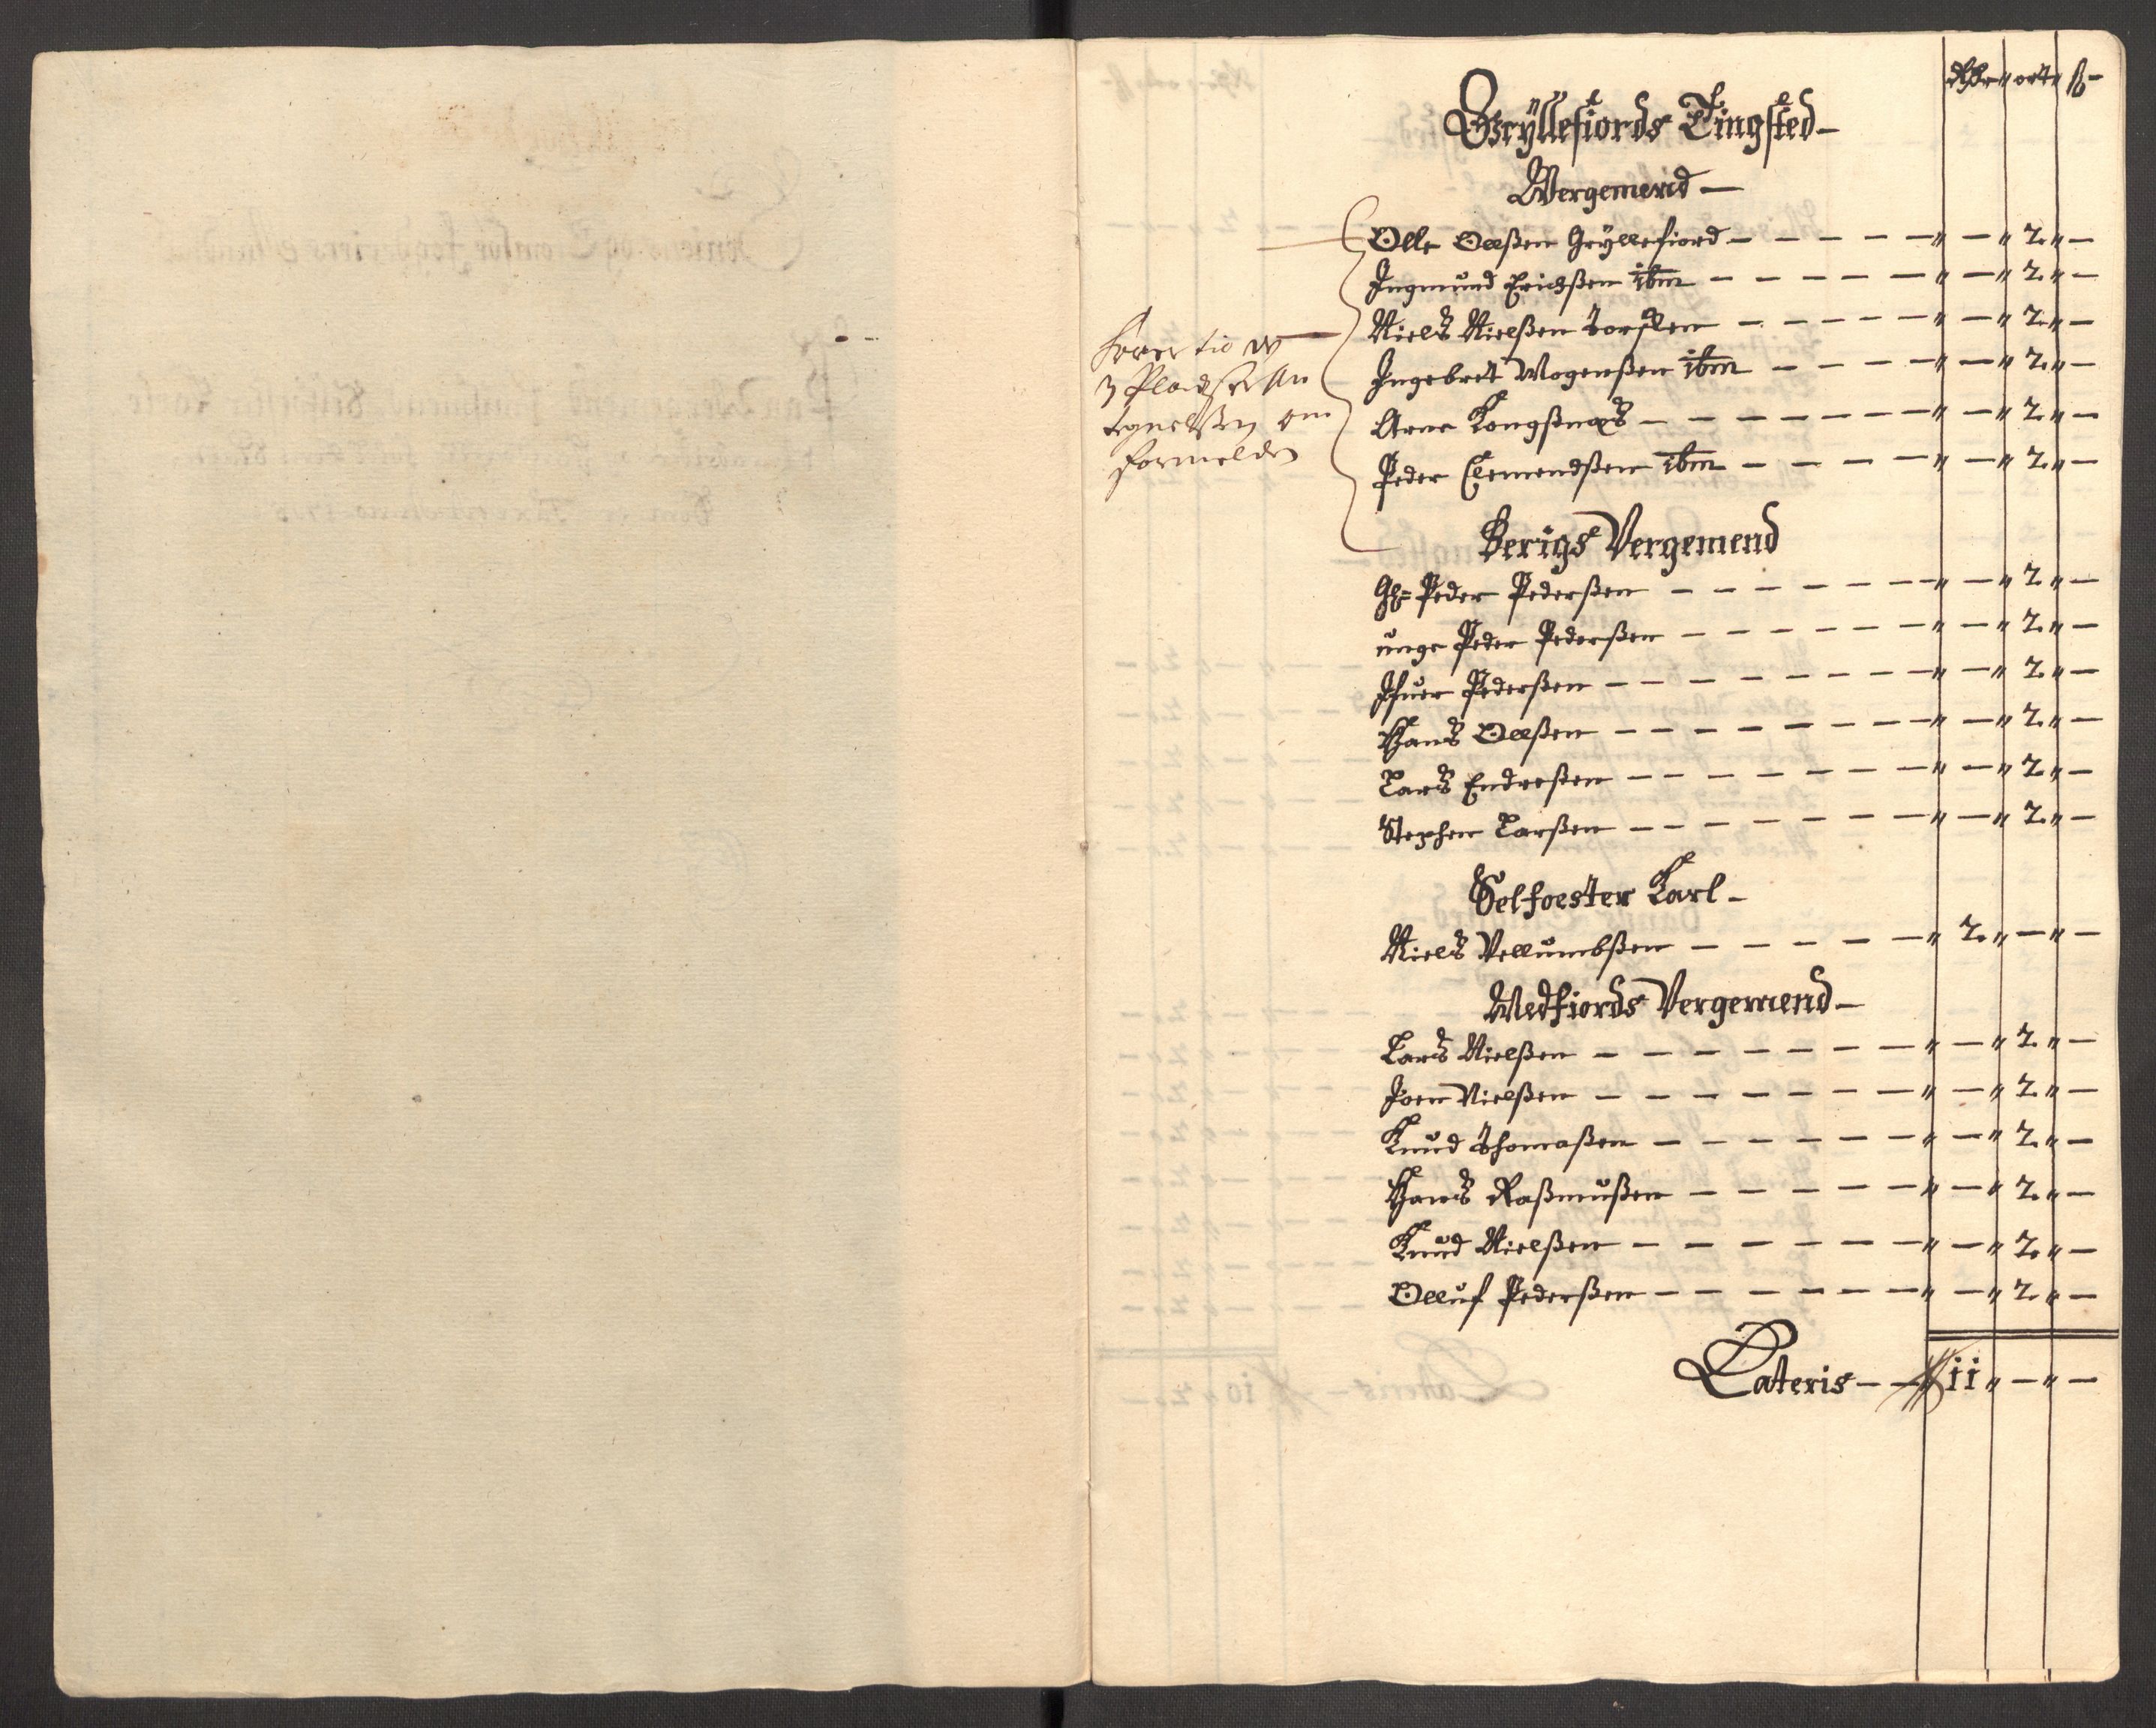 Rdr " ort " ß -
Gryllefiords Tingsted -
Wergemend -
Olle Olsßen Gryllefiord - - - - " - " 2 " -
Ingmund Erichßen ibm - - - - " - " 2 " -
Niels Nielßen Torsken - - - - " - " 2 " -
Ingebret Mogenßen ibm - - - - " - " 2 " -
Arne Kongsnæs - - - - " - " 2 " -
Peder Clemendßen ibm - - - - " - " 2 " -
3 Pladser An
tegnelßen om
formelder
Bergs Vergemend
Gl= Peder Pederßen - - - - " - " 2 " -
unge Peder Pederßen - - - - " - " 2 " -
Ifuer Pederßen - - - - " - " 2 " -
Hans Olßen - - - - " - " 2 " -
Lars Endreßen - - - - " - " 2 " -
Stephen Larßen - - - - " - " 2 " -
Selfoester Karl -
Niels Vellumbßen - - - - " 2 " - " -
Medfiords Vergemend -
Lars Nielßen - - - - " - " 2 " -
Joen Nielßen - - - - " - " 2 " -
Knud Thomaßen - - - - " - " 2 " -
Hans Raßmußen - - - - " - " 2 " -
Knud Nielßen - - - - " - " 2 " -
Olluf Pederßen - - - - " - " 2 " -
Lateris - - 11 " - " -